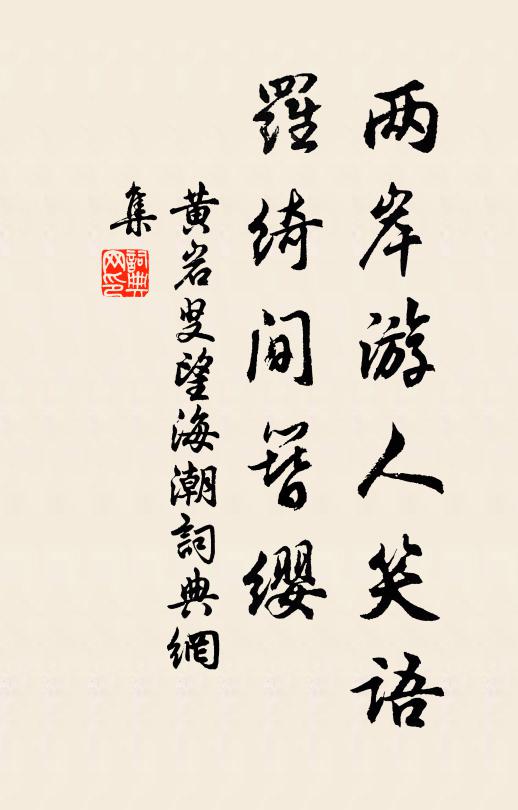 两岸游人笑语
羅绮间簪缨
黄岩叟望海潮詞典網
集
詞典
网印